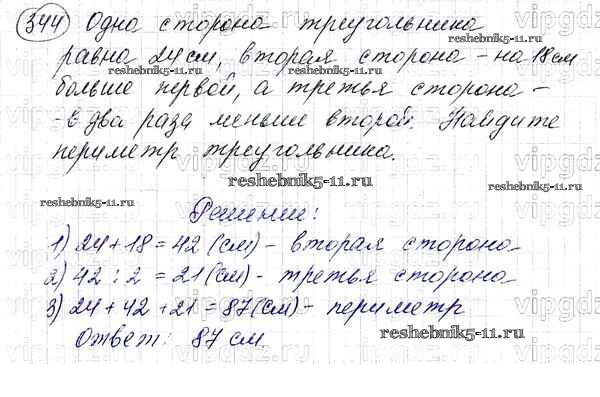 344 Одна сторона треугольника
равна 24 см, вторая сторона – на 18 см
reshebnik5-11.ru reshebnik5-11.ru
больше первой, а третья сторона –
- в два раза меньше второй. Найдите
периметр треугольника.
reshebnik5-11.ru
reshebnik5-11.ru
Решение:
1) 24 + 18 = 42 (см) – вторая сторона
2) 42 : 2 = 21 (см) – третья сторона
3) 24 + 42 + 21 = 87 (см) – периметр
Ответ: 87 см.
reshebnik5-11.ru